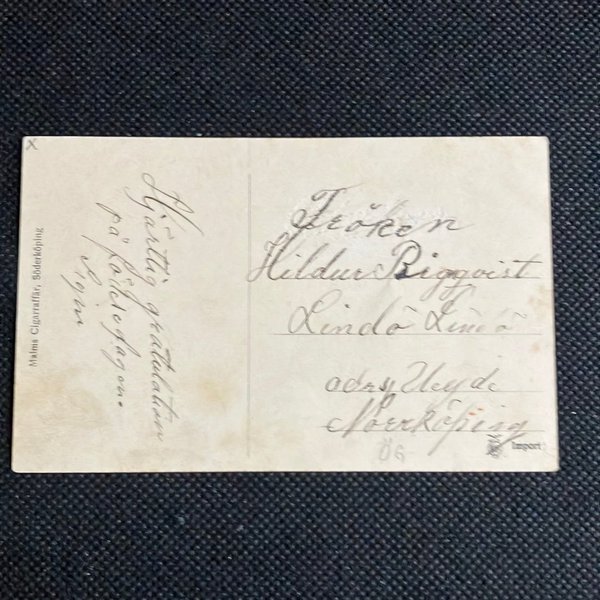 x
Malms Cigarraffär, Söderköping
Hjärtlig gratulation
på födelsedagen.
Signe
Fröken
Hildur Bigqvist
Lindö Lindö
Norrköping
Import
ÖG